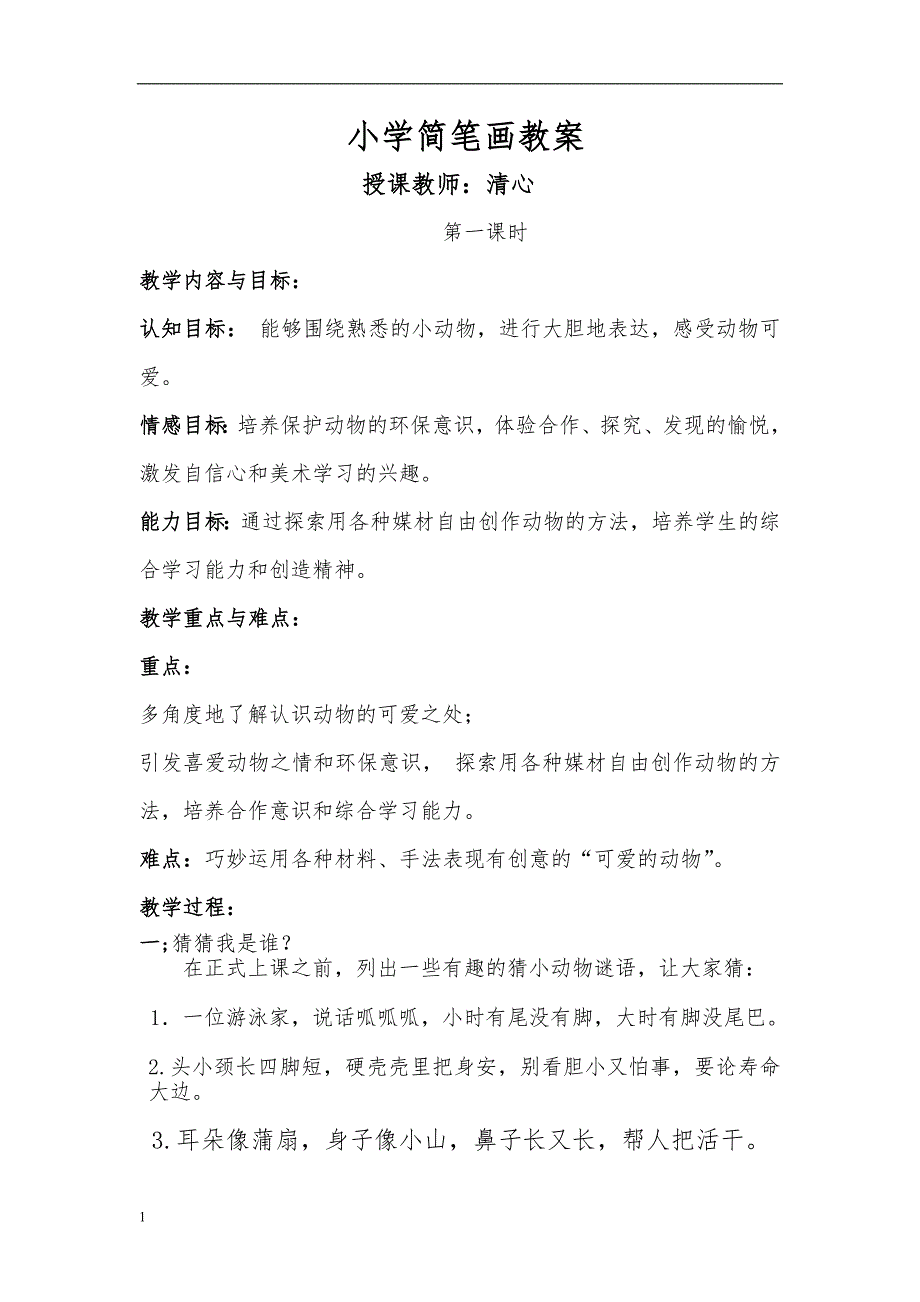 小学简笔画教案
授课教师：清心
第一课时
教学内容与目标：
认知目标： 能够围绕熟悉的小动物，进行大胆地表达，感受动物可
爱。
情感目标：培养保护动物的环保意识，体验合作、探究、发现的愉悦，
激发自信心和美术学习的兴趣。
能力目标：通过探索用各种媒材自由创作动物的方法，培养学生的综
合学习能力和创造精神。
教学重点与难点：
重点：
多角度地了解认识动物的可爱之处；
引发喜爱动物之情和环保意识， 探索用各种媒材自由创作动物的方
法，培养合作意识和综合学习能力。
难点：巧妙运用各种材料、手法表现有创意的“可爱的动物”。
教学过程：
一;猜猜我是谁？
在正式上课之前，列出一些有趣的猜小动物谜语，让大家猜：
1．一位游泳家，说话呱呱呱，小时有尾没有脚，大时有脚没尾巴。
2.头小颈长四脚短，硬壳壳里把身安，别看胆小又怕事，要论寿命
大边。
3.耳朵像蒲扇，身子像小山，鼻子长又长，帮人把活干。
1